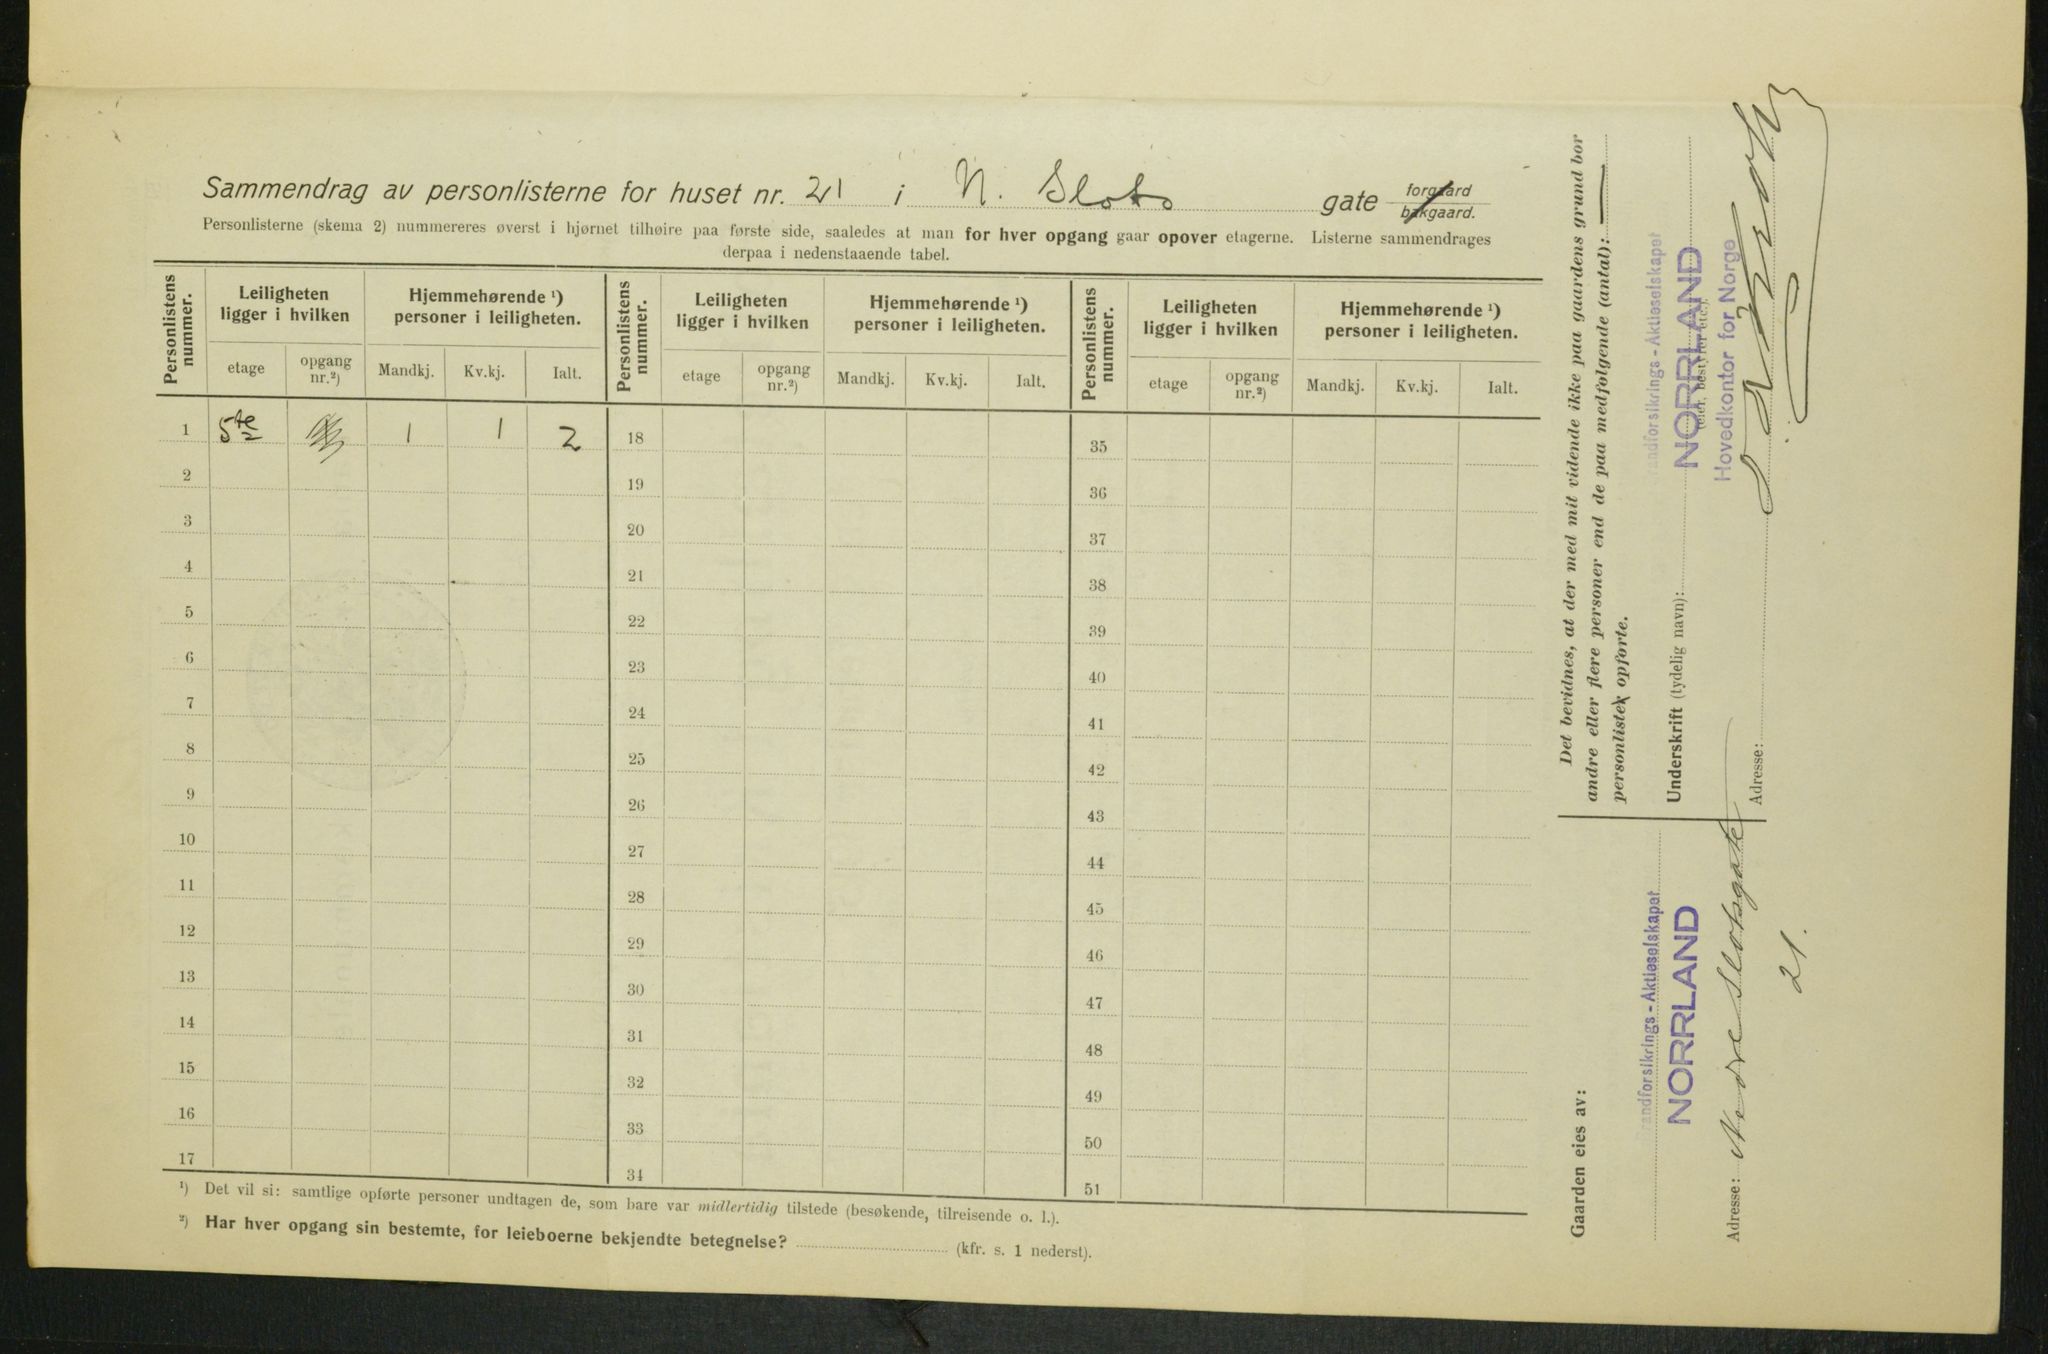 Sammendrag av personlisterne for huset nr. 21 i N. Slots gate forgaard bakgaard.
Personlisterne (skema 2) nummereres øverst i hjørnet tilhøire paa første side, saaledes at man for hver opgang gaar opover etagerne. Listerne sammendrages
derpaa i nedenstaaende tabel.
Personlistens nummer. Leiligheten ligger i hvilken Hjemmehørende ¹) personer i leiligheten. Personlistens nummer. Leiligheten ligger i hvilken Hjemmehørende ¹) personer i leiligheten. Personlistens nummer. Leiligheten ligger i hvilken Hjemmehørende ¹) personer i leiligheten.
etage opgang nr.²) Mandkj. Kv.kj. Ialt. etage opgang nr.²) Mandkj. Kv.kj. Ialt. etage opgang nr.²) Mandkj. Kv.kj. Ialt.
1 5te 1 1 2 18 35
2 19 36
3 20 37
4 21 38
5 22 39
6 23 40
7 24 41
8 25 42
9 26 43
10 27 44
11 28 45
12 29 46
13 30 47
14 31 48
15 32 49
16 33 50
17 34 51
¹) Det vil si: samtlige opførte personer undtagen de, som bare var midlertidig tilstede (besøkende, tilreisende o. l.).
²) Har hver opgang sin bestemte, for leieboerne bekjendte betegnelse? (kfr. s. 1 nederst).
Det bevidnes, at der med mit vidende ikke paa gaardens grund bor
andre eller flere personer end de paa medfølgende (antal): —
personlister opførte.
Brandforsikrings-Aktieselskapet
Underskrift (tydelig navn): NORRLAND
(eier, bestyrer etc.).
Hovedkontor for Norge
Adresse:
Gaarden eies av:
Brandforsikrings-Aktieselskapet
NORRLAND
Adresse: Nedre Slotsgate
21.